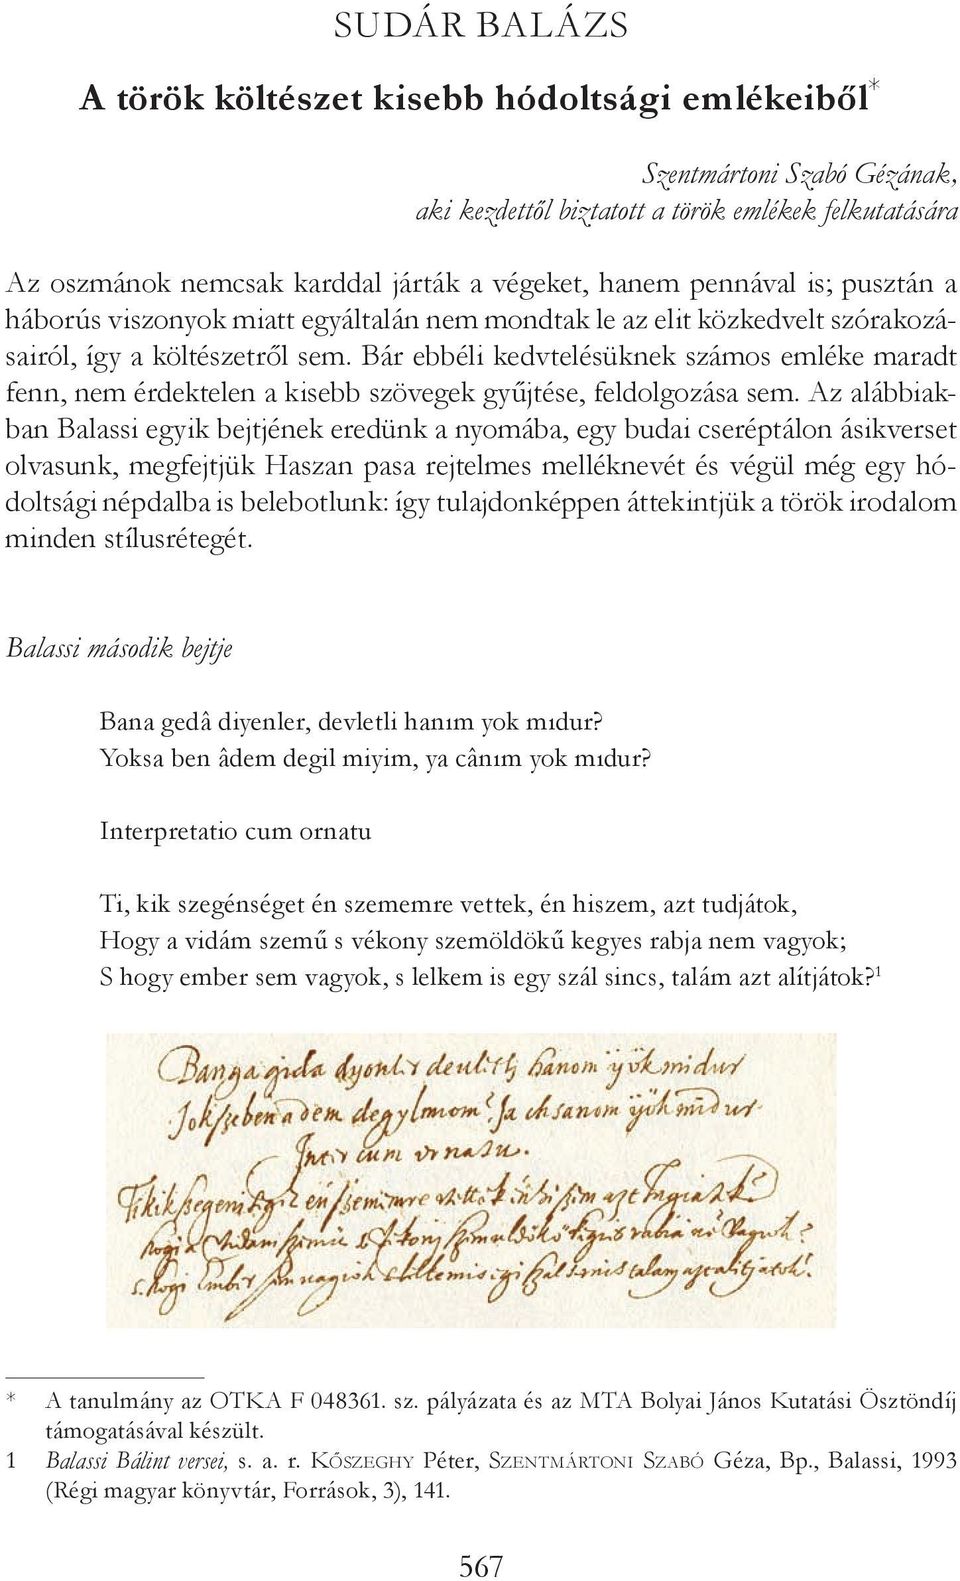 SUDÁR BALÁZS
A török költészet kisebb hódoltsági emlékeiből*
Szentmártoni Szabó Gézának,
aki kezdettől biztatott a török emlékek felkutatására
Az oszmánok nemcsak karddal járták a végeket, hanem pennával is; pusztán a
háborús viszonyok miatt egyáltalán nem mondtak le az elit közkedvelt szórakozá-
sairól, így a költészetről sem. Bár ebbéli kedvtelésüknek számos emléke maradt
fenn, nem érdektelen a kisebb szövegek gyűjtése, feldolgozása sem. Az alábbiak-
ban Balassi egyik bejtjének eredünk a nyomába, egy budai cseréptálon ásikverset
olvasunk, megfejtjük Haszan pasa rejtelmes melléknevét és végül még egy hó-
doltsági népdalba is belebotlunk: így tulajdonképpen áttekintjük a török irodalom
minden stílusrétegét.
Balassi második bejtje
Bana gedâ diyenler, devletli hanım yok mıdur?
Yoksa ben âdem degil miyim, ya cânım yok mıdur?
Interpretatio cum ornatu
Ti, kik szegénséget én szememre vettek, én hiszem, azt tudjátok,
Hogy a vidám szemű s vékony szemöldökű kegyes rabja nem vagyok;
S hogy ember sem vagyok, s lelkem is egy szál sincs, talám azt alítjátok?¹
Banga gida dyonler deulitlj hanom ÿök midur
Jokszeben adem degylmiom? Ja chsanom ÿök midur
Inter cum ornatu.
* A tanulmány az OTKA F 048361. sz. pályázata és az MTA Bolyai János Kutatási Ösztöndíj
támogatásával készült.
1 Balassi Bálint versei, s. a. r. KŐSZEGHY Péter, SZENTMÁRTONI SZABÓ Géza, Bp., Balassi, 1993
(Régi magyar könyvtár, Források, 3), 141.
567